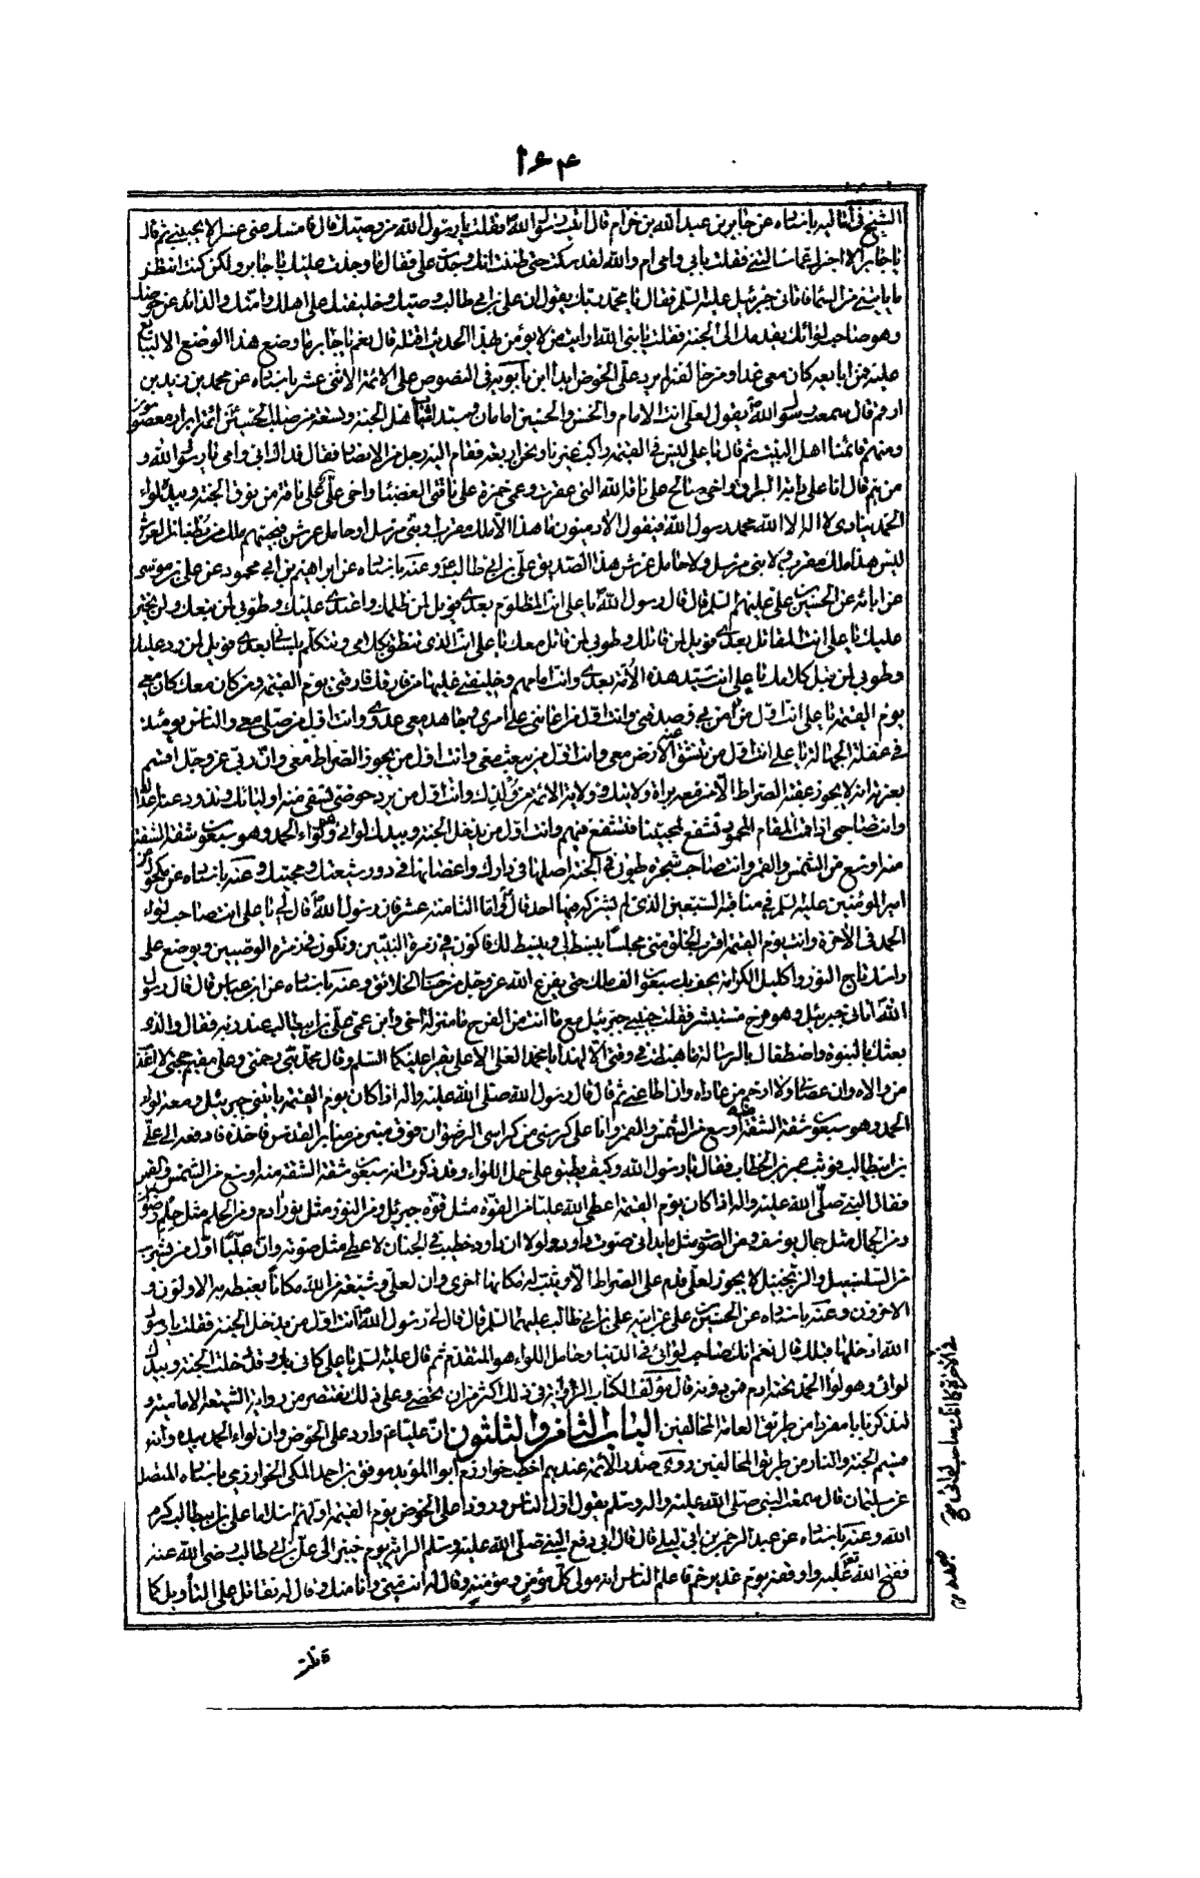 ١٦٤
الشيخ في أماليه باسناده عن جابر بن عبد الله بن حزام قال اتيت رسول الله ص فقلت يا رسول الله من وصيك قال فامسك عني عشرا لا يجيبني ثم قال
يا جابر الا اخبرك عما سالتني فقلت بابي وامي ام والله لقد سكت حتى ظننت انك وجدت علي فقال ما وجدت عليك يا جابر ولكن كنت انتظر
ما ياتيني من السماء فاتاني جبرئيل عليه السلم فقال يا محمد ربك يقول ان علي بن ابي طالب وصيك وخليفتك على اهلك وامتك والذائد عن حوضك
وهو صاحب لوائك يقدمك الى الجنة فقلت يا نبي الله ارايت من لا يؤمن بهذا الحديث اقتله قال نعم يا جابر ما وضع هذا الوضع الا ليتابع
عليه فمن تابعه كان معي غدا ومن خالفه لم يرد علي الحوض ابدا ابن بابويه في النصوص على الائمة الاثنى عشر باسناده عن محمد بن زيد بن
ارقم قال سمعت رسول الله ص يقول لعلي انت الامام والحسن والحسين امامان وسيدا شباب اهل الجنة وتسعة من صلب الحسين ائمة ابرار معصومون
ومنهم قائمنا اهل البيت ثم قال يا علي ليس في القيمة راكب غيرنا ونحن اربعة فقام اليه رجل من الانصار فقال فداك ابي وامي يا رسول الله و
من هم قال انا على دابة البراق واخي صالح على ناقة الله التي عقرت وعمي حمزة على ناقتي العضباء واخي علي على ناقة من نوق الجنة وبيده لواء
الحمد ينادي لا اله الا الله محمد رسول الله فيقول الآدميون ما هذا الا ملك مقرب او نبي مرسل او حامل عرش فيجيبهم ملك من بطنان العرش
ليس هذا ملك مقرب ولا نبي مرسل ولا حامل عرش هذا الصديق علي بن ابي طالب ع وعنه باسناده عن ابراهيم بن ابي محمود عن علي بن موسى
عن ابائه عن الحسين بن علي عليهم السلم قال قال رسول الله ص يا علي انت المظلوم بعدي فويل لمن ظلمك واعتدى عليك وطوبى لمن تبعك ولم يختر
عليك يا علي انت المقاتل بعدي فويل لمن قاتلك وطوبى لمن قاتل معك يا علي انت الذي تنطق بكلامي وتتكلم بلساني بعدي فويل لمن رد عليك
وطوبى لمن قبل كلامك يا علي انت سيد هذه الأمة بعدي وانت امامهم وخليفتي عليها من فارقك فارقني يوم القيمة ومن كان معك كان معي
يوم القيمة يا علي انت اول من امن بي وصدقني وانت اول من اعانني على امري وجاهد معي عدوي وانت اول من صلى معي والناس يومئذ
في غفلة الجهالة يا علي انت اول من تنشق عنه الارض معي وانت اول من يبعث معي وانت اول من يجوز الصراط معي وان ربي عز وجل اقسم
بعزته انه لا يجوز عقبة الصراط الا من معه براة بولايتك وولاية الائمة من ولدك وانت اول من يرد حوضي تسقي منه اوليائك وتذود عنه اعدائك
وانت صاحبي اذا قمت المقام المحمود تشفع لمحبينا فتشفع فيهم وانت اول من يدخل الجنة وبيدك لوائي وهو لواء الحمد وهو سبعون شقة الشقة
منه اوسع من الشمس والقمر وانت صاحب شجرة طوبى في الجنة اصلها في دارك واغصانها في دور شيعتك ومحبيك وعنه باسناده عن مكحول عن
امير المؤمنين عليه السلم في مناقبه السبعين الذي لم يشركه فيها احد قال واما الثامنة عشر فان رسول الله ص قال لي يا علي انت صاحب لواء
الحمد في الآخرة وانت يوم القيمة اقرب الخلق مني مجلسا يبسط لي ويبسط لك فاكون في زمرة النبيين وتكون في زمرة الوصيين ويوضع على
راسك تاج النور واكليل الكرامة يحف بك سبعون الف ملك حتى يفرغ الله عز وجل من حساب الخلائق وعنه باسناده عن ابن عباس قال قال رسول
الله ص اتاني جبرئيل وهو فرح مستبشر فقلت حبيبي جبرئيل مع ما انت من الفرح ما منزلة اخي وابن عمي علي بن ابيطالب عند ربه فقال والذي
بعثك بالنبوة واصطفاك بالرسالة ما هبطت في وقتي الا لهذا يا محمد العلي الاعلى يقرء عليكما السلم وقال محمد نبي رحمتي وعلي مقيم حجتي لا اعذب
من والاه وان عصاني ولا ارحم من عاداه وان اطاعني ثم قال قال رسول الله صلى الله عليه واله اذا كان يوم القيمة ياتيني جبرئيل ومعه لواء
الحمد وهو سبعون شقة الشقة منه اوسع من الشمس والقمر وانا على كرسي من كراسي الرضوان فوق منبر من منابر القدس فاخذه فادفعه الى علي
بن ابيطالب فوثب عمر بن الخطاب فقال يا رسول الله وكيف يطيق علي حمل اللواء وقد ذكرت انه سبعون شقة الشقة منه اوسع من الشمس والقمر
فقال النبي صلى الله عليه واله اذا كان يوم القيمة اعطى الله عليا من القوة مثل قوة جبرئيل ومن النور مثل نور ادم ومن الحلم مثل حلم رضوان
ومن الجمال مثل جمال يوسف ومن الصوت مثل ما يداني صوت داود ولولا ان داود خطيب في الجنان لاعطى مثل صوته وان عليا اول من يشرب
من السلسبيل والزنجبيل لا يجوز لعلي قدم على الصراط الا وثبت له مكانها اخرى وان لعلي وشيعته من الله مكانا يغبطه به الاولون و
الاخرون وعنه باسناده عن الحسين بن علي عن ابيه علي بن ابي طالب عليهما السلم قال قال لي رسول الله ص انت اول من يدخل الجنة فقلت يا رسول
الله ادخلها قبلك قال نعم انك صاحب لوائي في الدنيا وحامل اللواء هو المتقدم ثم قال عليه السلم يا علي كاني بك وقد دخلت الجنة وبيدك
لوائي وهو لواء الحمد تحته ادم فمن دونه قال مؤلف الكتاب الروايات في ذلك اكثر من ان تحصى وعلى ذلك نقتصر من رواية الشيعة الامامية و
لنذكر بابا مفردا من طريق العامة المخالفين الباب الثامن والثلثون ان عليا ع وارد على الحوض وان لواء الحمد بيده وانه
قسيم الجنة والنار من طريق المخالفين روى صدر الائمة عندهم اخطب خوارزم ابو المؤيد موفق بن احمد المكي الخوارزمي باسناده المتصل
عن سلمان قال سمعت النبي صلى الله عليه واله وسلم يقول اول الناس ورودا على الحوض يوم القيمة اولهم اسلاما علي بن ابيطالب كرم
الله وعنه باسناده عن عبد الرحمن بن ابي ليلى قال قال ابي دفع النبي صلى الله عليه وسلم الراية يوم خيبر الى علي بن ابي طالب رضي الله عنه
ففتح الله تعالى عليه واوقفه يوم غدير خم فاعلم الناس انه مولى كل مؤمن ومؤمنة وقال له انت مني وانا منك وقال له تقاتل على التأويل كما
قاتلت
في الآخرة كما انك صاحب لوائي في